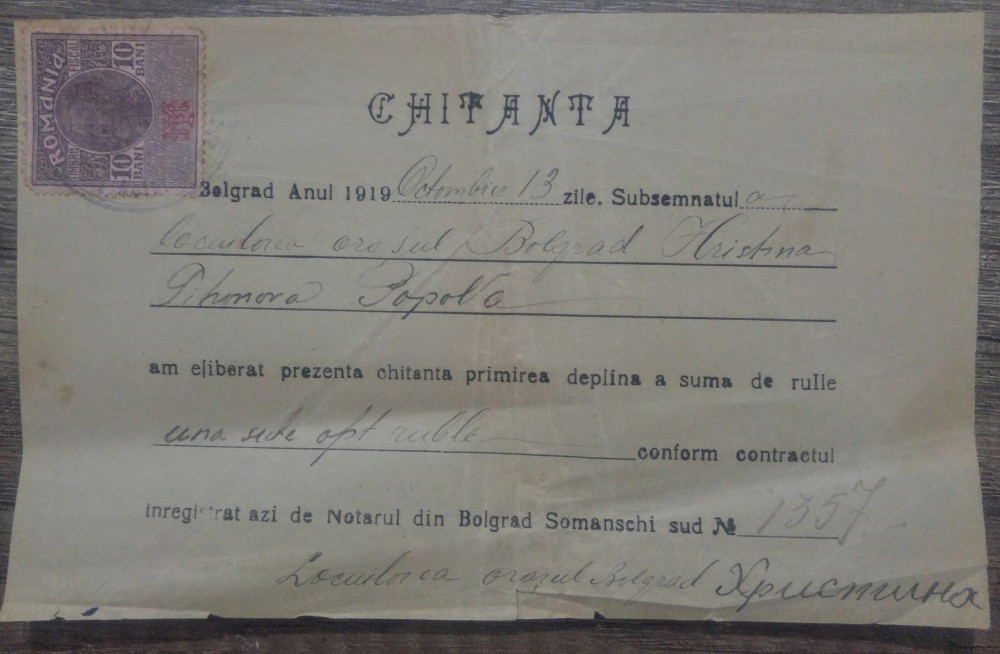 ROMANIA
TIMBRU FISCAL
10 BANI 10 BANI
CHITANTA
Belgrad Anul 1919 Octombrie 13 zile. Subsemnatul a
locuitorea orașul Bolgrad Hristina
Tihonova Popova
am eliberat prezenta chitanta primirea deplina a suma de rulle
una sute opt ruble conform contractul
inregistrat azi de Notarul din Bolgrad Somanschi sud № 1357
Locuitorea orașul Bolgrad Христина